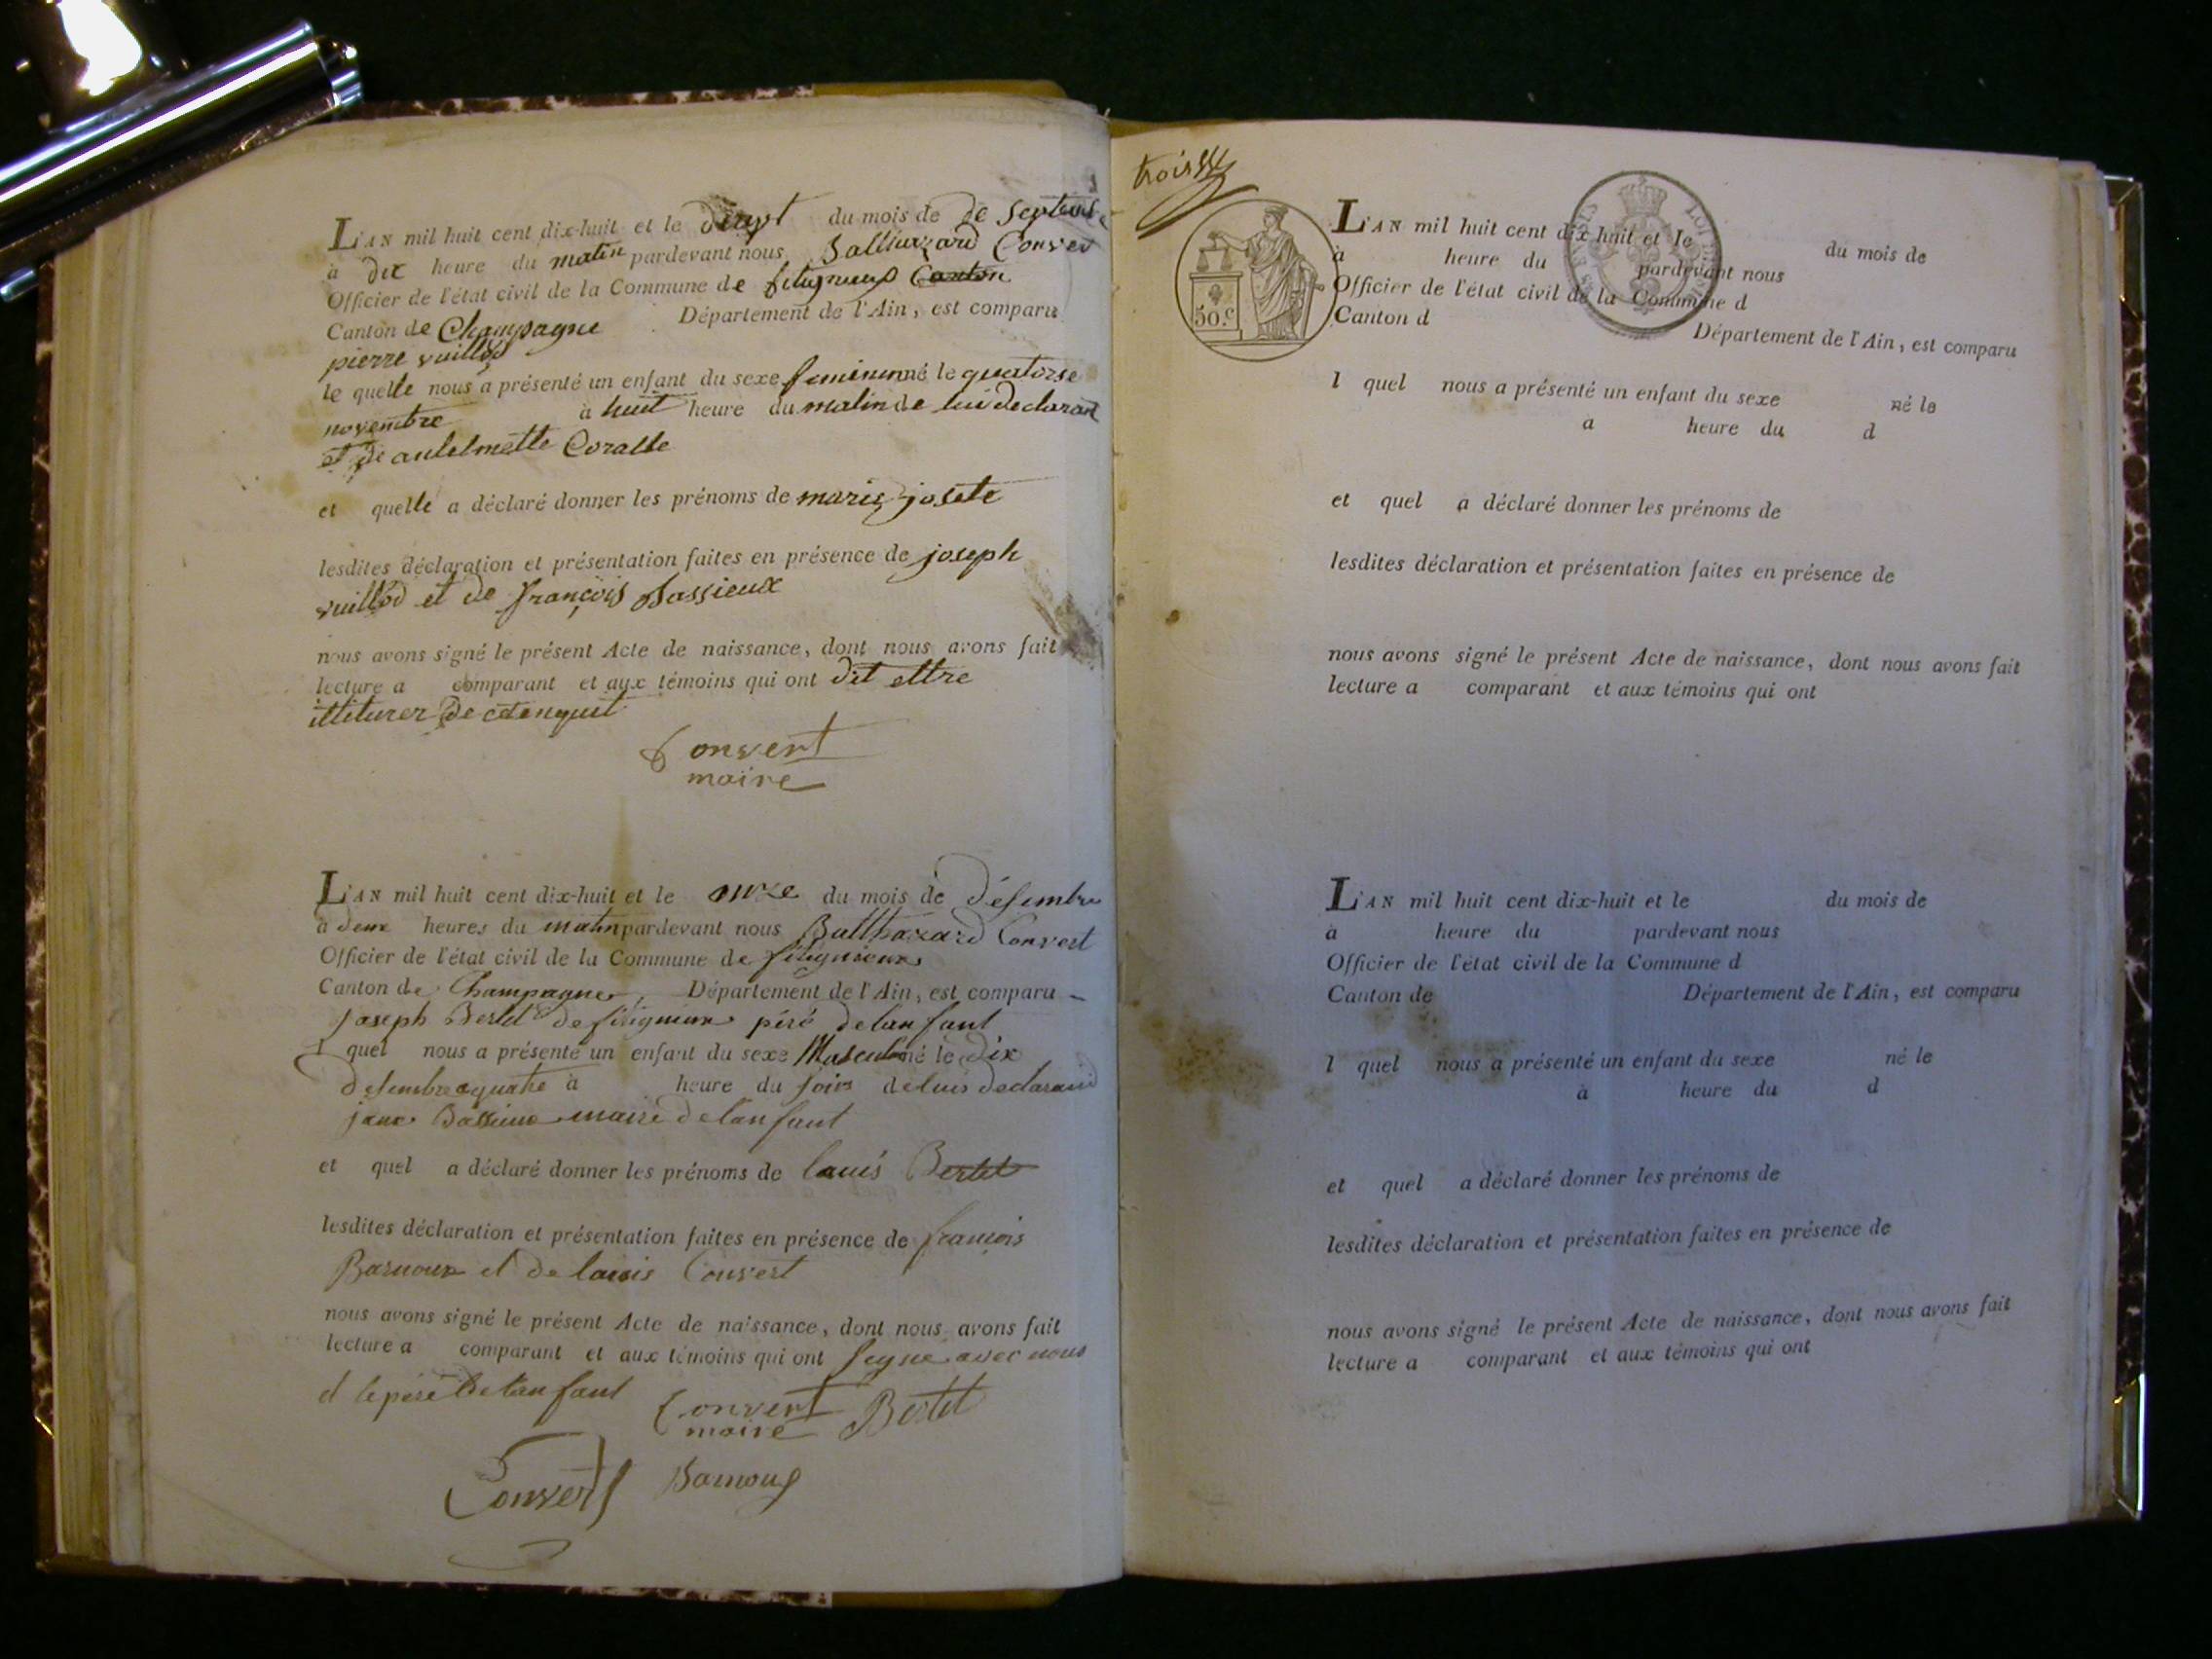 L'AN mil huit cent dix-huit et le vingt du mois de de septembre
à dix heure du matin pardevant nous Balthazard Conver
Officier de l'état civil de la Commune de fitignieux Canton
Canton de Champagne Département de l'Ain, est comparu
pierre vuillod
le quelle nous a présenté un enfant du sexe femininn né le quatorse
novembre à huit heure du matin de lui declarant
et de antelmette Coralle
et quelle a déclaré donner les prénoms de marie josete
lesdites déclaration et présentation faites en présence de joseph
vuillod et de françois Dassieux
nous avons signé le présent Acte de naissance, dont nous avons fait
lecture a comparant et aux témoins qui ont dit ettre
illiturer de
Convert
maire
L'AN mil huit cent dix-huit et le onze du mois de désembre
à deux heures du matin pardevant nous Balthazard Convert
Officier de l'état civil de la Commune de fitignieux
Canton de Champagne, Département de l'Ain, est comparu
joseph Bertet de fitignieux péré delanfant
l quel nous a présenté un enfant du sexe Masculin né le dix
desembre a quatre à heure du soir de luis declarand
jane Bassieux maire delanfant
et quel a déclaré donner les prénoms de louis Bertet
lesdites déclaration et présentation faites en présence de francois
Barnoux et de louis Convert
nous avons signé le présent Acte de naissance, dont nous avons fait
lecture a comparant et aux témoins qui ont signe avec nous
et le péré delanfant
Convert
maire
Bertet
Convert
Barnoux
trois
50.c
L'AN mil huit cent dix huit et le du mois de
à heure du pardevant nous
Officier de l'état civil de la Commune d
Canton d Département de l'Ain, est comparu
l quel nous a présenté un enfant du sexe né le
à heure du d
et quel a déclaré donner les prénoms de
lesdites déclaration et présentation faites en présence de
nous avons signé le présent Acte de naissance, dont nous avons fait
lecture a comparant et aux témoins qui ont
L'AN mil huit cent dix-huit et le du mois de
à heure du pardevant nous
Officier de l'état civil de la Commune d
Canton de Département de l'Ain, est comparu
l quel nous a présenté un enfant du sexe né le
à heure du d
et quel a déclaré donner les prénoms de
lesdites déclaration et présentation faites en présence de
nous avons signé le présent Acte de naissance, dont nous avons fait
lecture a comparant et aux témoins qui ont